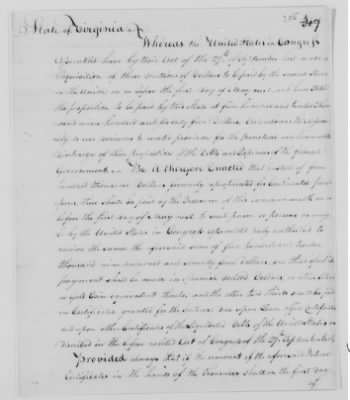 307
State of Virginia
Whereas the United States in Congress
Assembled have by their Act of the 27th of September last made a
Requisition of three millions of Dollars to be paid by the several States
in the Union on or before the first day of May next, and have Stated
the proportion to be paid by this State at five hundred and twelve thou-
sand nine hundred and seventy four Dollars, And whereas the Assem-
bly is ever anxious to make provision for the punctual and honourable
discharge of their proportion of the Debts and Expences of the general
Government. Be it therefore Enacted that instead of four
hundred thousand Dollars formerly appropriated for Continental pur-
poses, there shall be paid by the Treasurer of this commonwealth on or
before the first day of May next to such person or persons as may
be by the United States in Congress Assembled duly authorised to
receive the same the aforesaid sum of five hundred and twelve
thousand nine hundred and seventy four Dollars, one third of which
payment shall be made in Spanish milled Dollars, or other Silver
or gold Coin equivalent thereto, and the other two thirds shall be paid
in Certificates, granted for the Interest due upon Loan office Certificates
and upon other Certificates of the Liquidated Debts of the United States, as
directed in the before recited Act of Congress of the 27th September last
Provided always that if the amount of the aforesaid Interest
Certificates in the hands of the Treasurer shall on the first day
of